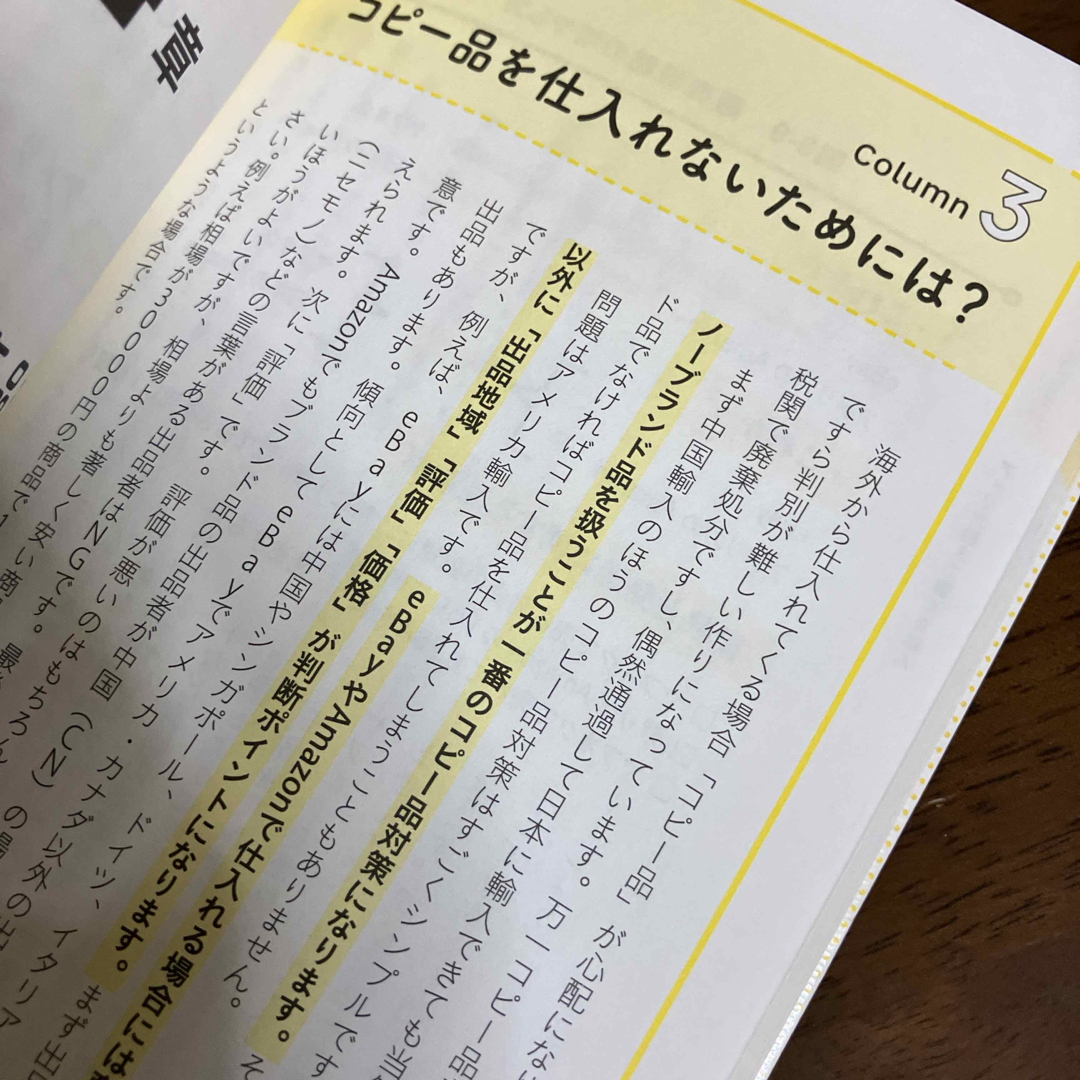 Column 3
コピー品を仕入れないためには?
海外から仕入れてくる場合「コピー品」が心配にな
ですら判別が難しい作りになっています。万一コピー品
税関で廃棄処分ですし、偶然通過して日本に輸入できても当
まず中国輸入のほうのコピー品対策はすごくシンプルです
ノーブランド品を扱うことが一番のコピー品対策になります。そ
ド品でなければコピー品を仕入れてしまうこともありません。
問題はアメリカ輸入です。eBayやAmazonで仕入れる場合には
以外に「出品地域」「評価」「価格」が判断ポイントになります。まず出
ですが、例えば、eBayには中国やシンガポール、ドイツ、イタリア
出品もあります。傾向としてeBayでアメリカ・カナダ以外の出
意です。Amazonでもブランド品の出品者が中国(CN)の場
えられます。次に「評価」です。評価が悪いのはもちろん、
(ニセモノン)などの言葉がある出品者はNGです。最
いほうがよいですが、相場よりも著しく安い商
さい。例えば相場が30000円の商品で1
というような場合です。
章